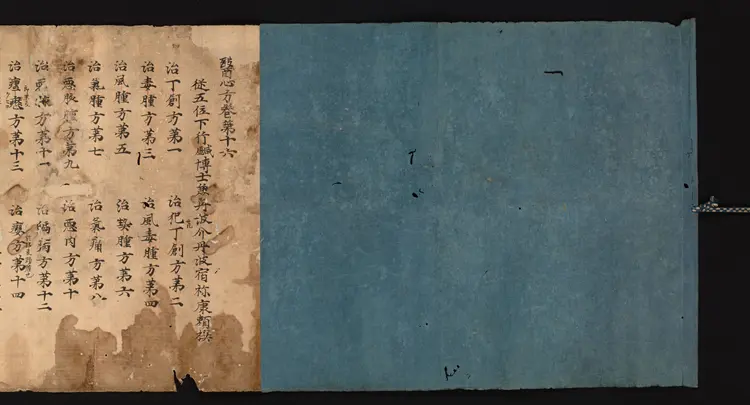 醫心方卷第十六
從五位下行鍼博士兼丹波介丹波宿祢康頼撰
治丁創方第一 治犯丁創方第二
治毒腫方第三 治風毒腫方第四
治風腫方第五 治熱腫方第六
治氣腫方第七 治氣痛方第八
治惡脉腫方第九 治惡肉方第十
治惡核方第十一 治瘑方第十二
治瘻方第十四